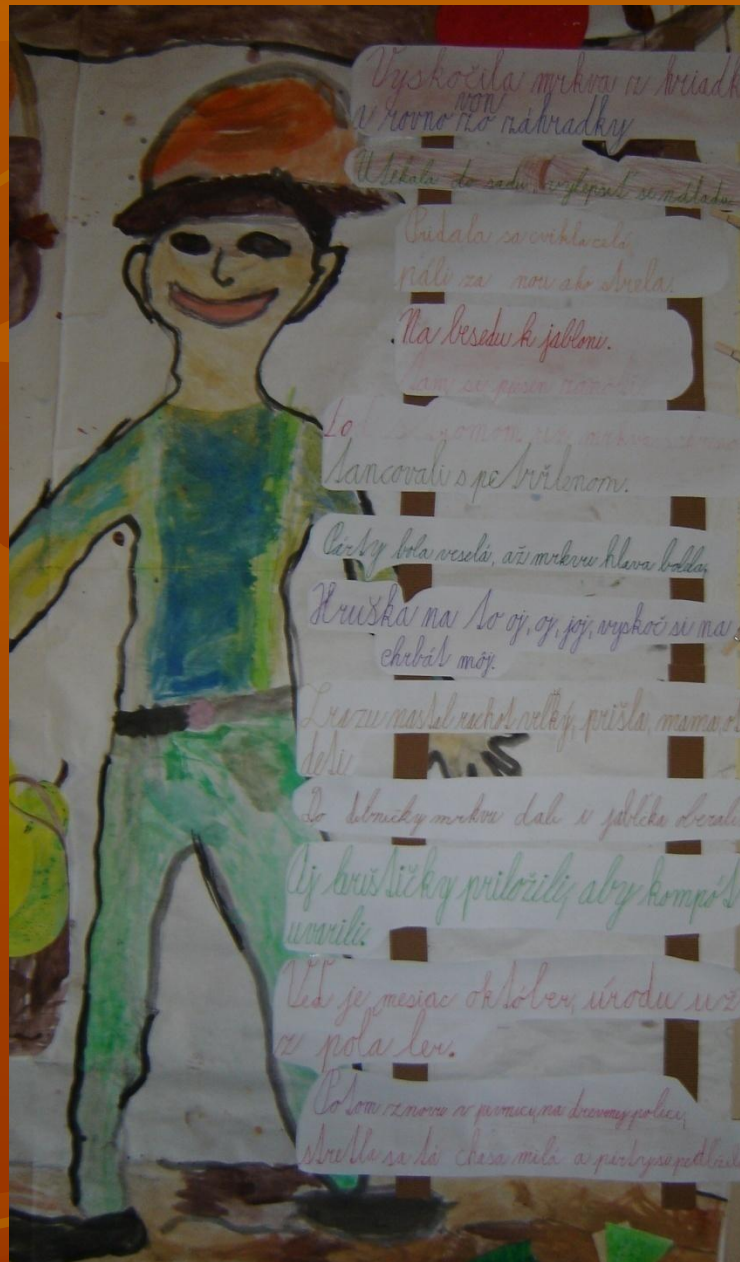 Vyskočila mrkva z hriadk
von
a rovno zo záhradky
Utekala do sadu, vylepšiť si náladu
Pridala sa cvikla celá,
páli za ňou ako strela.
Na besedu k jabloni.
tam sa pieseň
Pod stromom už mrkva
tancovali s petržlenom.
Párty bola veselá, až mrkvu hlava bolela,
Hruška na to oj, oj, joj, vyskoč si na
chrbát môj.
Zrazu nastal rachot veľký, prišla, mama
deti
Do debničky mrkvu dali a jabĺčka oberali
Aj hruštičky priložili, aby kompót
uvarili.
Veď je mesiac október, úrodu už
z poľa ber.
Potom znovu v pivnici, na drevenej polici,
stretla sa tá chasa milá a párty si